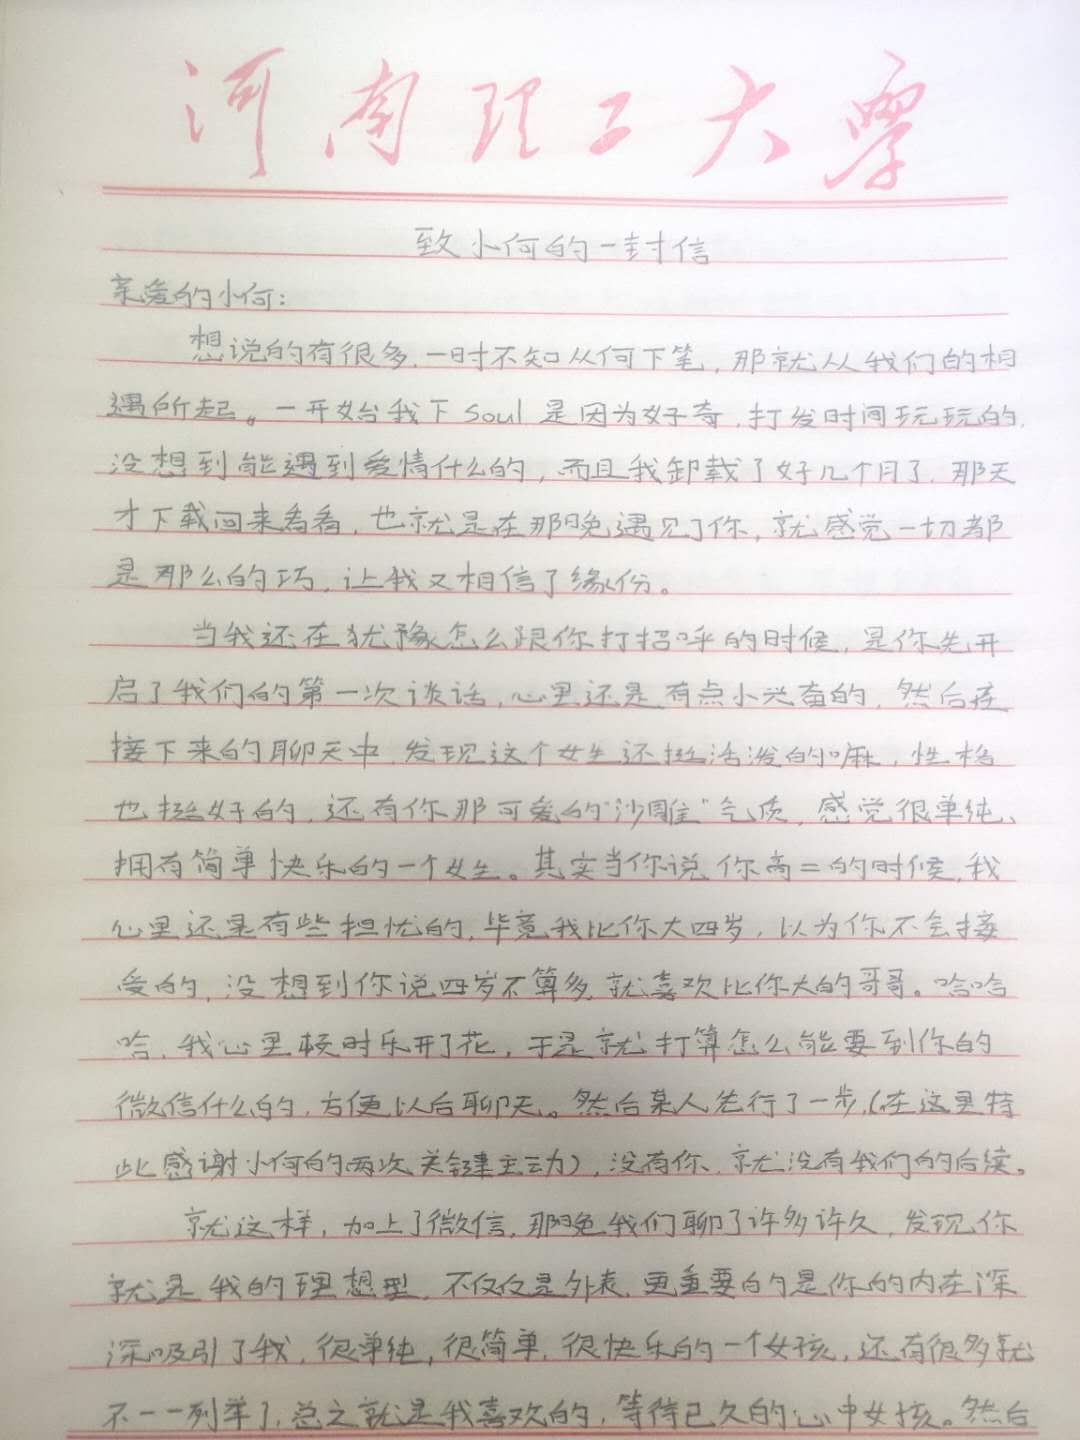 河南理工大学
致小何的一封信
亲爱的小何：
想说的有很多，一时不知从何下笔，那就从我们的相
遇所起。一开始我下Soul是因为好奇，打发时间玩玩的，
没想到能遇到爱情什么的，而且我卸载了好几个月了，那天
才下载回来看看，也就是在那晚遇见了你，就感觉一切都
是那么的巧，让我又相信了缘份。
当我还在犹豫怎么跟你打招呼的时候，是你先开
启了我们的第一次谈话，心里还是有点小兴奋的，然后在
接下来的聊天中，发现这个女生还挺活泼的嘛，性格
也挺好的，还有你那可爱的“沙雕”气质，感觉很单纯、
拥有简单快乐的一个女生。其实当你说你高二的时候，我
心里还是有些担忧的，毕竟我比你大四岁，以为你不会接
受的，没想到你说四岁不算多，就喜欢比你大的哥哥。哈哈
哈，我心里顿时乐开了花，于是就打算怎么能要到你的
微信什么的，方便以后聊天。然后某人先行了一步，(在这里特
此感谢小何的两次关键主动)，没有你，就没有我们的后续。
就这样，加上了微信，那晚我们聊了许多许久，发现你
就是我的理想型，不仅仅是外表，更重要的是你的内在深
深吸引了我，很单纯，很简单，很快乐的一个女孩，还有很多就
不一一列举了，总之就是我喜欢的，等待已久的心中女孩。然后